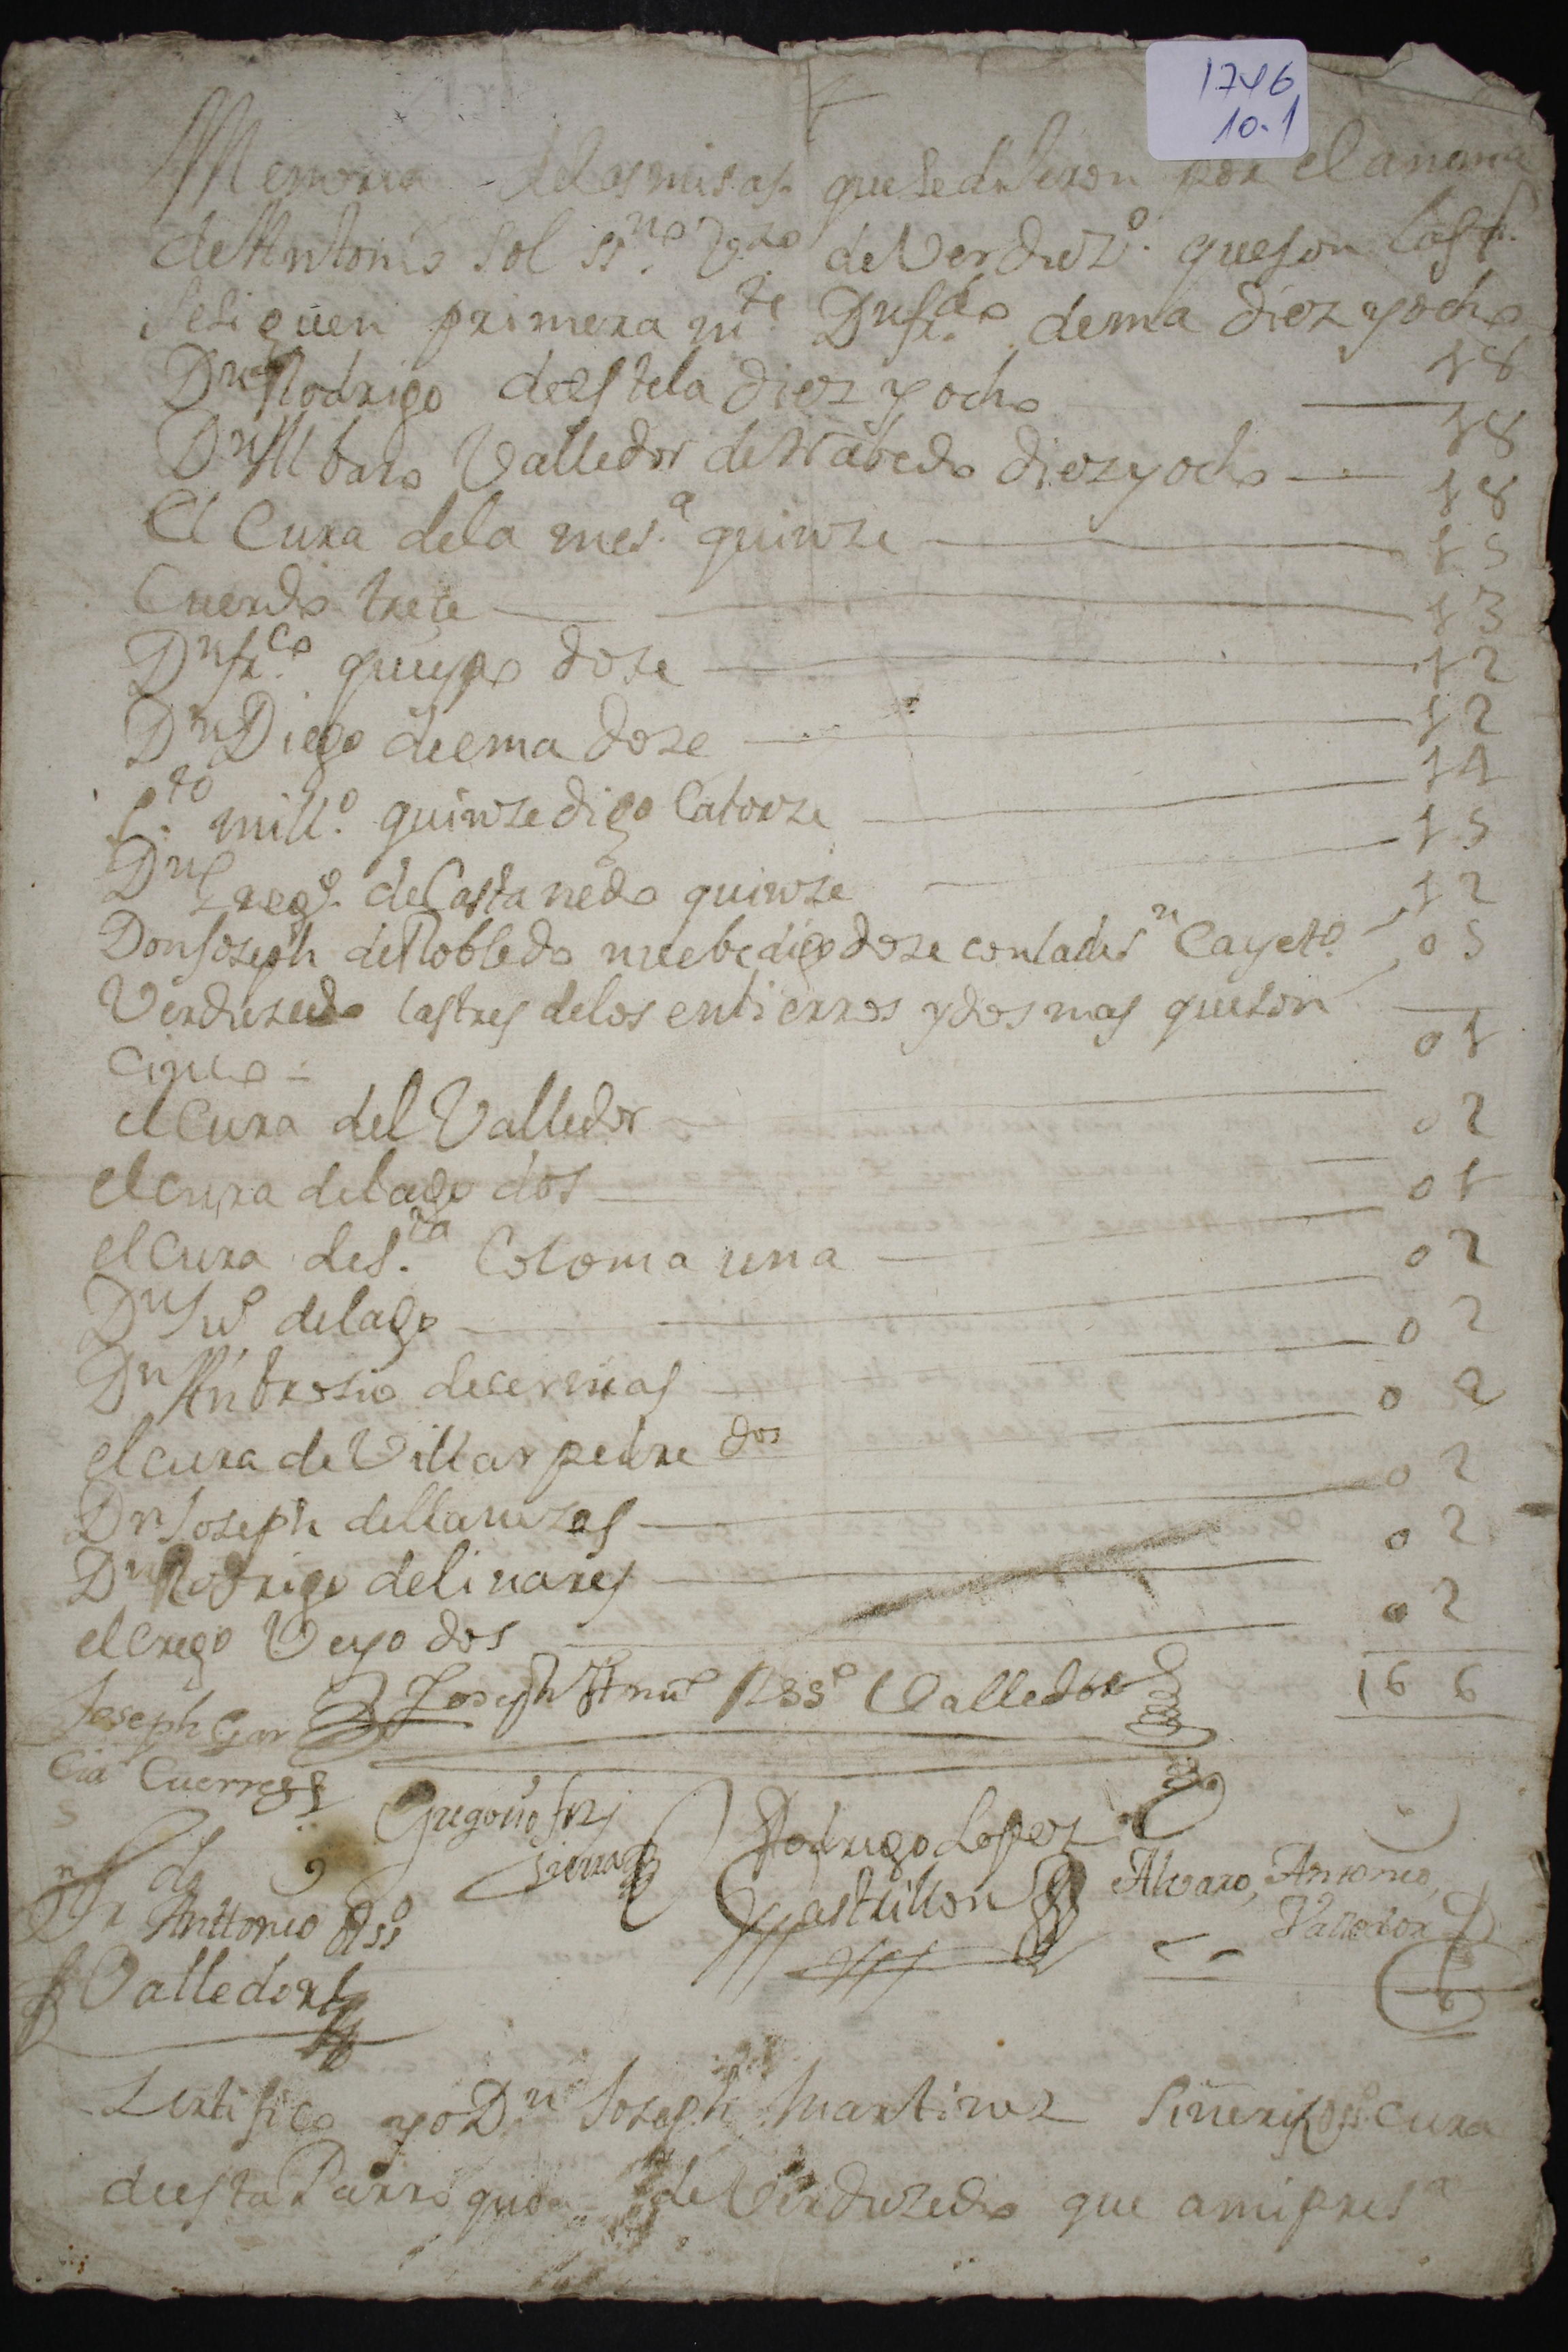 1746
10.1
Memoria de las misas que se dixeron por el anima
de Antonio Sol ss.no Vz.no de Verduz.o que son las
se siguen primera m.te Dn fr.do dema diez y ocho
18
Dn Rodrigo de estela diez y ocho 18
Dn Albaro Valledor de trabedo diez y ocho 18
El Cura de la mes.a quinze 15
Cuerdo treze 13
Dn fr.co queypo doze 12
Dn Diego de ema doze 12
mill.o quinze digo Catorze 14
Dn greg.o de Castanedo quinze 15
Don Joseph de Robledo nuebe digo doze con la de Dn Cayet.o 12
Verduzedo las tres de los entierros y dos mas que son 05
Cinco
el Cura del Valledor 01
el cura de lago dos 02
el cura de S.ta Coloma una 01
Dn Ju.o de lago 02
Dn Anbrosio de cerveras 02
el cura de Villar pedre dos 02
Dn Joseph de llanezas 02
Dn Rodrigo de linares 02
el crego Veyo dos 02
166
Joseph Gar
cia Cuerres
Joseph Ant.o Valledor
Gregorio frz
sierra
Rodrigo Lopez
Castrillon
Alvaro, Antonio,
Valledor
Anttonio
Valledor
Zertifico yo Dn Joseph Martinez cura
de esta Parroquia de Verduzedo que a mi pres.a